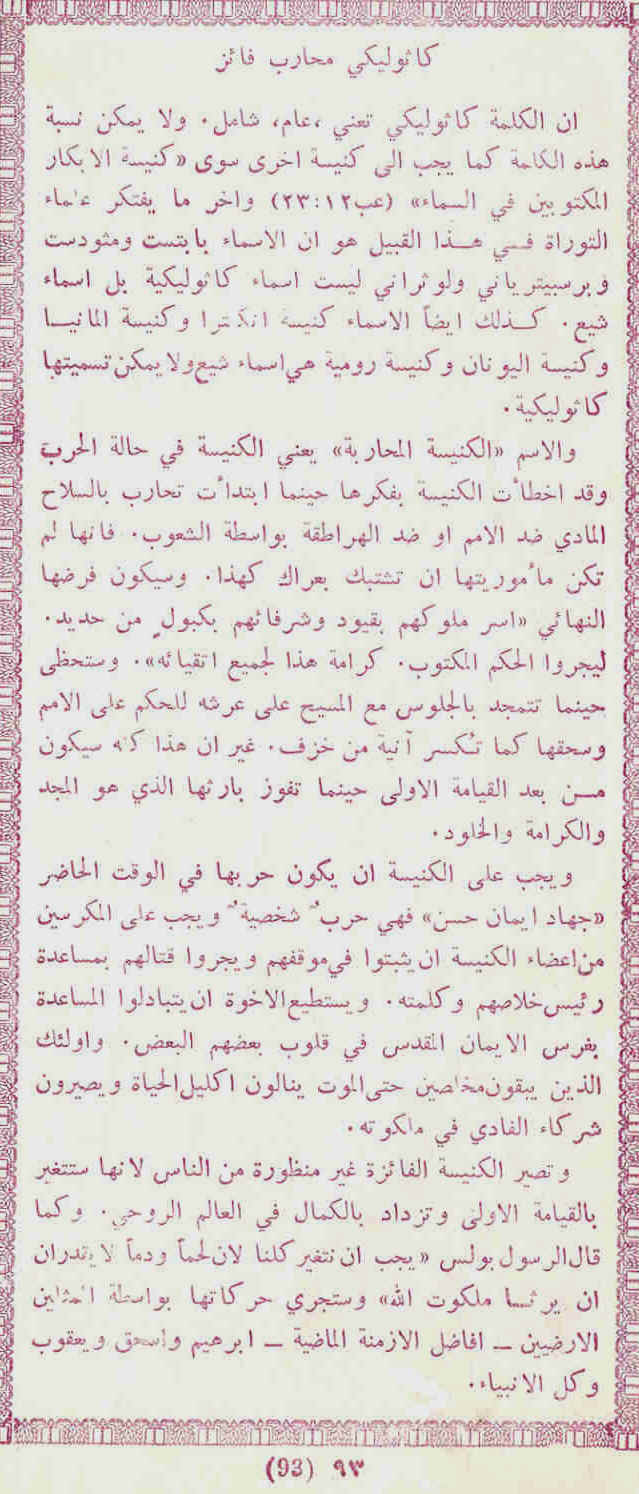 كاثوليكي محارب فائز
ان الكلمة كاثوليكي تعني ،عام، شامل. ولا يمكن نسبة
هذه الكلمة كما يجب الى كنيسة اخرى سوى «كنيسة الابكار
المكتوبين في السماء» (عب١٢:‏٢٣) واخر ما يفتكر علماء
التوراة فـي هـذا القبيل هو ان الاسماء بابتست ومثودست
وبرسبيترياني ولوثراني ليست اسماء كاثوليكية بل اسماء
شيع. كـذلك ايضاً الاسماء كنيسة انكلترا وكنيسة المانيـا
وكنيسة اليونان وكنيسة رومية هي اسماء شيع ولا يمكن تسميتها
كاثوليكية.
والاسم «الكنيسة المحاربة» يعني الكنيسة في حالة الحرب
وقد اخطأت الكنيسة بفكرها حينما ابتدأت تحارب بالسلاح
المادي ضد الامم او ضد الهراطقة بواسطة الشعوب. فانها لم
تكن مأموريتها ان تشتبك بعراك كهذا. وسيكون فرضها
النهائي «اسر ملوكهم بقيود وشرفائهم بكبولٍ من حديد.
ليجروا الحكم المكتوب. كرامة هذا لجميع اتقيائه». وستحظى
حينما تتمجد بالجلوس مع المسيح على عرشه للحكم على الامم
وسحقها كما تُكسر آنية من خزف. غير ان هذا كله سيكون
مـن بعد القيامة الاولى حينما تفوز بارثها الذي هو المجد
والكرامة والخلود.
ويجب على الكنيسة ان يكون حربها في الوقت الحاضر
«جهاد ايمان حسن» فهي حربٌ شخصيةٌ ويجب على المكرسين
من اعضاء الكنيسة ان يثبتوا في موقفهم ويجروا قتالهم بمساعدة
رئيس خلاصهم وكلمته. ويستطيع الاخوة ان يتبادلوا المساعدة
بغرس الايمان المقدس في قلوب بعضهم البعض. واولئك
الذين يبقون مخلصين حتى الموت ينالون اكليل الحياة ويصيرون
شركاء الفادي في ملكوته.
وتصير الكنيسة الفائزة غير منظورة من الناس لانها ستتغير
بالقيامة الاولى وتزداد بالكمال في العالم الروحي. وكما
قال الرسول بولس «يجب ان نتغير كلنا لان لحماً ودماً لا يقدران
ان يرثـا ملكوت الله» وستجري حركاتها بواسطة الممثلين
الارضيين ــ افاضل الازمنة الماضية ــ ابرهيم واسحق ويعقوب
وكل الانبياء.
٩٣ (93)